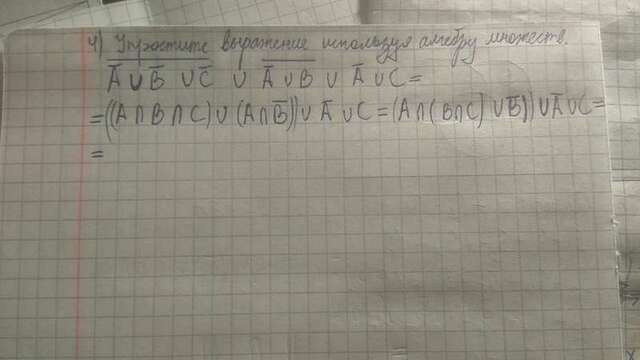 4) Упростите выражение используя алгебру множеств.
$\overline{\overline{A} \cup \overline{B} \cup \overline{C}} \cup \overline{\overline{A} \cup B} \cup \overline{A} \cup C =$
$= ((A \cap B \cap C) \cup (A \cap \overline{B})) \cup \overline{A} \cup C = (A \cap (B \cap C) \cup \overline{B})) \cup \overline{A} \cup C =$
=